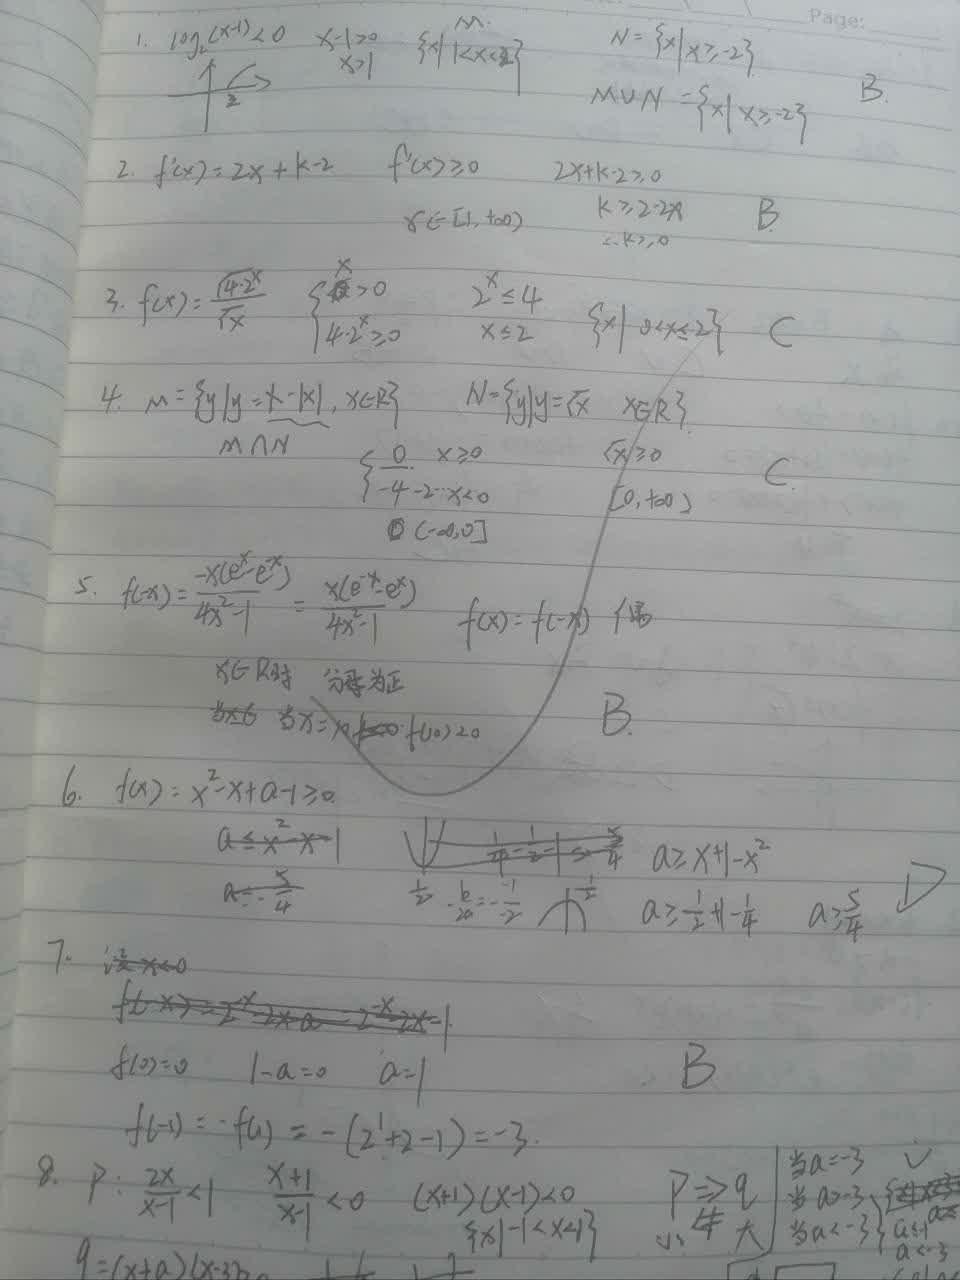 Page:
1. log₂(x-1)<0 x-1>0 x>1 M. {x|1<x<2} N={x|x≥-2}
2
M∪N={x|x≥-2} B.
2. f'(x)=2x+k-2 f'(x)≥0 2x+k-2≥0
x∈[1,+∞) k≥2-2x B.
∴k≥0
3. f(x)=√(4-2^x)/√x {x>0 2^x≤4
4-2^x≥0 x≤2 {x|0<x≤2} C
4. M={y|y=x-|x|, x∈R} N={y|y=√x x∈R}
M∩N {0. x≥0 √x≥0 C.
-4 -2 … x<0 [0,+∞)
(-∞,0]
5. f(-x)=-x(e^x-e^-x)/4x²-1 = x(e^-x-e^x)/4x²-1 f(x)=f(-x) 偶
x∈R时 为正
当x= B.
6. f(x)=x²-x+a-1≥0
a≤x²-x-1 5/4 a≥x+1-x²
a=-5/4 1/2 -b/2a=-1/-2 1/2 a≥1/2+1-1/4 a≥5/4 D
7. x<0
f(0)=0 1-a=0 a=1 B
f(-1)=-f(1)=-(2¹+2-1)=-3.
8. P: 2x/x-1<1 x+1/x-1<0 (x+1)(x-1)<0 P⇒q 当a=-3 ✓
{x|-1<x<1} 小 大 当a>-3
当a<-3
a<-3
q=(x+a)(x-3)